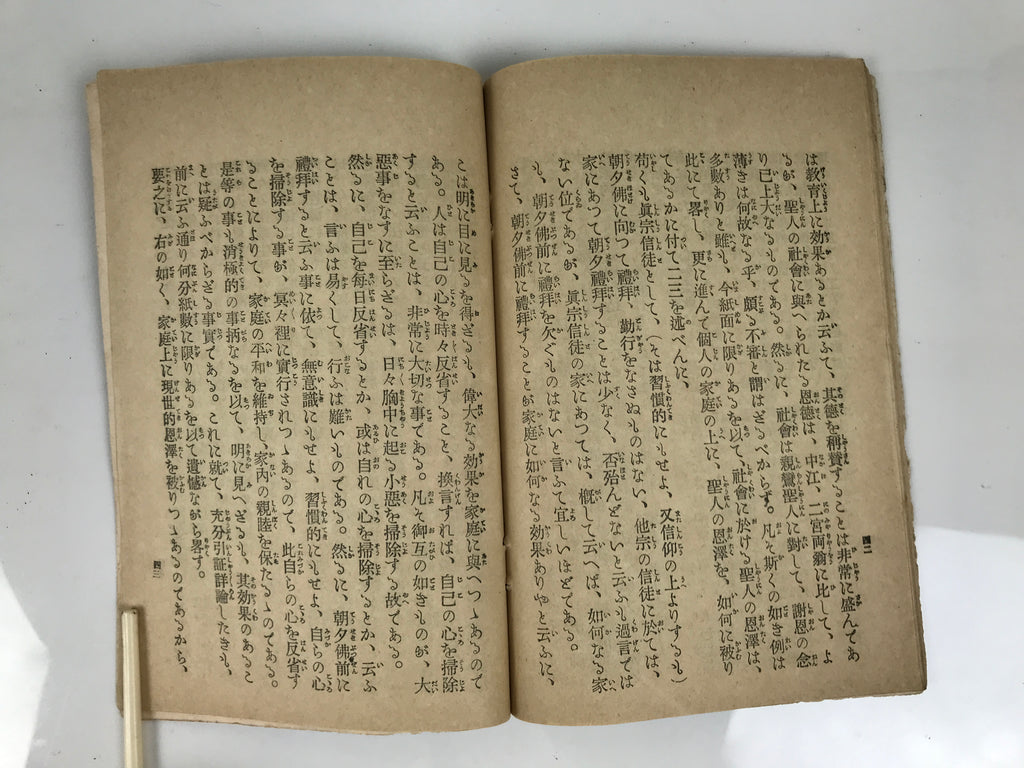 は教育上に効果あるとか云ふて、其德を稱賛することは非常に盛んてあ
るが、聖人の社會に與へられたる恩德は、中江、二宮両翁に比して、よ
り已上大なるものてある。然るに、社會は親鸞聖人に對して、謝恩の念
薄きは何故なる乎、頗る不審と謂はざるべからず。凡そ斯くの如き例は
多數ありと雖へも、今紙面に限りあるを以て、社會に於ける聖人の恩澤は、
此にて畧し、更に進んて個人の家庭の上に、聖人の恩澤を、如何に被り
てあるかに付て二三を述べんに、
苟くも眞宗信徒として、(そは習慣的にもせよ、又信仰の上よりするも)
朝夕佛に向つて禮拜、勤行をなさぬものはない、他宗の信徒に於ては、
家にあつて朝夕禮拜することは少なく、否殆んどないと云ふも過言では
ない位であるが、眞宗信徒の家にあつては、概して云へば、如何なる家
も、朝夕佛前に禮拜を欠ぐものはないと言ふて宜しいほどである。
さて、朝夕佛前に禮拜することが家庭に如何なる効果ありやと云ふに、
四二
こは明に目に見るを得ざるも、偉大なる効果を家庭に與へつゝあるので
ある。人は自己の心を時々反省すること、換言すれば、自己の心を掃除
すると云ふことは、非常に大切な事である。凡そ御互の如きものが、大
惡事をなすに至らざるは、日々胸中に起る小惡を掃除する故である。
然るに、自己を每日反省するとか、或は自れの心を掃除するとか、云ふ
ことは、言ふは易くして、行ふは難いものである。然るに、朝夕佛前に
禮拜すると云ふ事に依て、無意識にもせよ、習慣的にもせよ、自らの心
を掃除する事が、冥々裡に實行されつゝあるので、此自らの心を反省す
ることによりて、家庭の平和を維持し、家內の親睦を保たるゝのである。
是等の事も消極的の事柄なるを以て、明に見へざるも、其効果のあるこ
とは疑ふべからざる事實である。これに就て、充分引証詳論したきも、
前に云ふ通り何分紙數に限りあるを以て遺憾ながら畧す。
要之に、右の如く、家庭上に現世的恩澤を被りつゝあるのてあるから、
四三